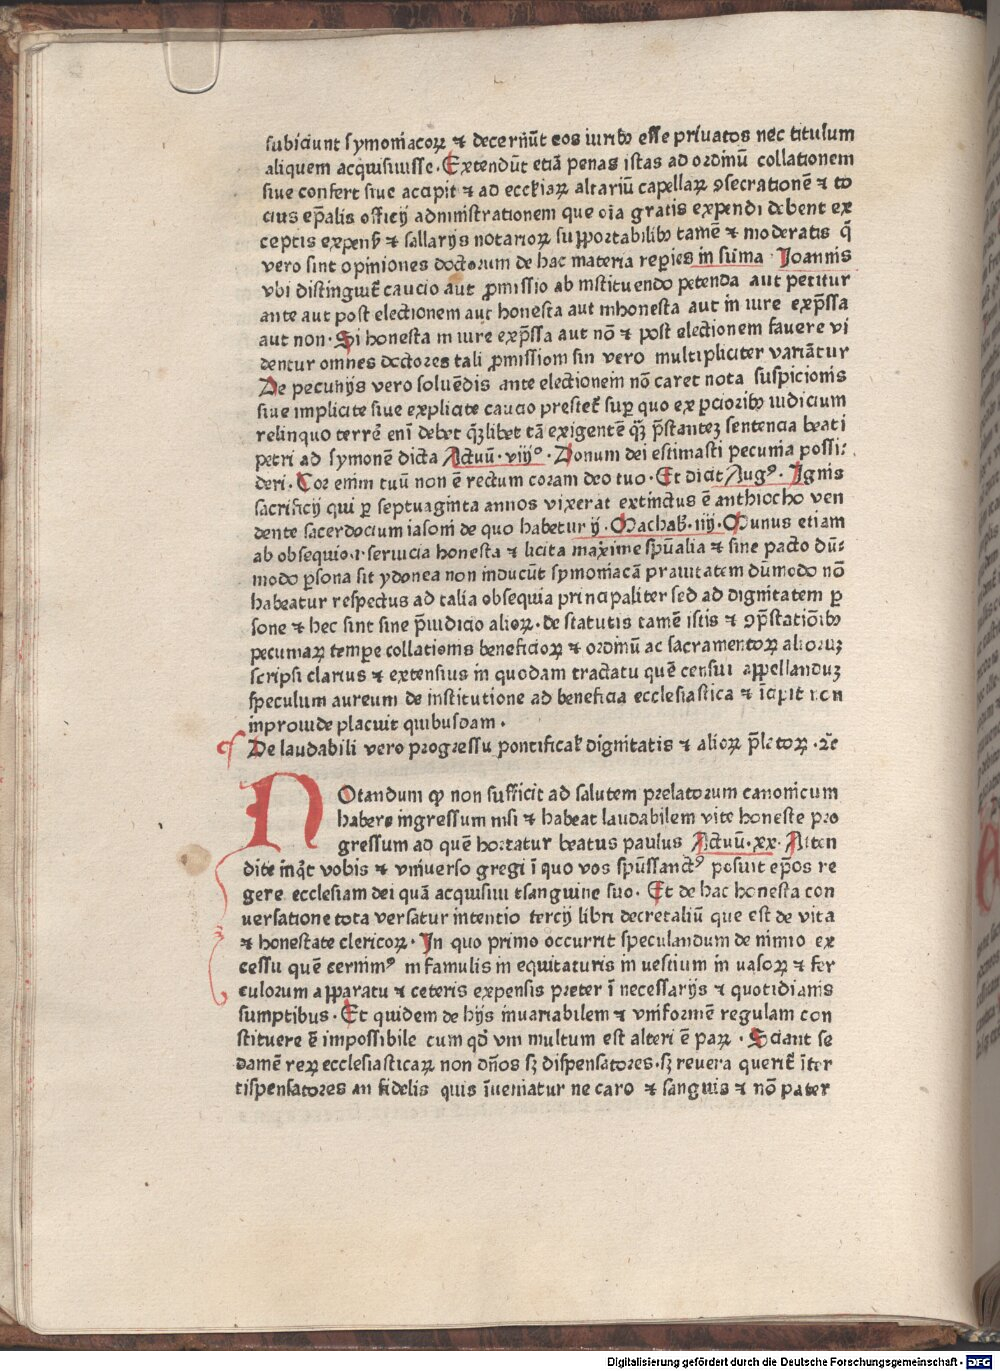 subiciunt symoniacoꝝ ⁊ decernūt eos iuribꝰ esse priuatos nec titulum
aliquem acquisiuisse. Extendūt etiā penas istas ad ordinū collationem
siue confert siue accipit ⁊ ad eccl̄iaꝝ altariū capellaꝝ ꝯsecrationē ⁊ to
cius ep̄alis officij administrationem que oīa gratis expendi debent ex
ceptis expens̄ ⁊ sallarijs notarioꝝ supportabilibꝰ tamē ⁊ moderatis q̄
vero sint opiniones doctorum de hac materia reꝑies in sūma Joannis
vbi distinguit̄ caucio aut ꝓmissio ab instituendo petenda aut petitur
ante aut post electionem aut honesta aut inhonesta aut in iure exp̄ssa
aut non. Si honesta in iure exp̄ssa aut nō ⁊ post electionem fauere vi
dentur omnes doctores tali ꝓmissioni sin vero multipliciter variātur
De pecunijs vero soluēdis ante electionem nō caret nota suspicionis
siue implicite siue explicite caucio prestet̄ suꝑ quo ex ꝑcioribꝰ iudicium
relinquo terrē eni debet q̄ꝫlibet tā exigentē q̄ꝫ p̄stantez sentencia beati
petri ad symonē dicta Actuū. viij°. Donum dei estimasti pecunia possi:
deri. Cor enim tuū non ē rectum coram deo tuo. Et dicit Augꝰ. Ignis
sacrificij qui ꝑ septuaginta annos vixerat extinctus ē anthiocho ven
dente sacerdocium iasoni de quo habetur ij. Machab̄. iiij. Munus etiam
ab obsequio ⁊ seruicia honesta ⁊ licita maxime sp̄ualia ⁊ sine pacto dū:
modo ꝑsona sit ydonea non inducūt symoniacā prauitatem dūmodo nō
habeatur respectus ad talia obsequia principaliter sed ad dignitatem ꝑ
sone ⁊ hec sint sine p̄iudicio alioꝝ. de statutis tamē istis ⁊ ꝯp̄stationībꝰ
pecuniaꝝ tempe collationis beneficioꝝ ⁊ ordinū ac sacramentoꝝ alioruꝫ
scripsi clarius ⁊ extensius in quodam tractatu quē censui appellanduꝫ
speculum aureum de institutione ad beneficia ecclesiastica ⁊ īcipit non
inprouide placuit quibusdam.
De laudabili vero progressu pontifical̄ dignitatis ⁊ alioꝝ p̄latoꝝ. ⁊c̄
NOtandum ꝙ non sufficit ad salutem prelatorum canonicum
habere ingressum nisi ⁊ habeat laudabilem vite honeste pro
gressum ad quē hortatur beatus paulus Actuū. xx. Atten
dite inq̄t vobis ⁊ vniuerso gregi ī quo vos sp̄ussanctꝰ posuit ep̄os re
gere ecclesiam dei quā acquisiuit sanguine suo. Et de hac honesta con
uersatione tota versatur intentio tercij libri decretaliū que est de vita
⁊ honestate clericoꝝ. In quo primo occurrit speculandum de nimio ex
cessu quē cernimꝰ in famulis in equitaturis in vestium in vasoꝝ ⁊ fer
culorum apparatu ⁊ ceteris expensis preter ī necessarijs ⁊ quotidianis
sumptibus. Et quidem de hijs inuariabilem ⁊ vniformē regulam con
stituere ē impossibile cum qd̓ vni multum est alteri ē paꝝ. Sciant se
damē reꝝ ecclesiasticaꝝ non dn̄os sꝫ dispensatores. sꝫ reuera querit̄ īter
tispensatores an fidelis quis īueniatur ne caro ⁊ sanguis ⁊ nō pater
Digitalisierung gefördert durch die Deutsche Forschungsgemeinschaft - DFG